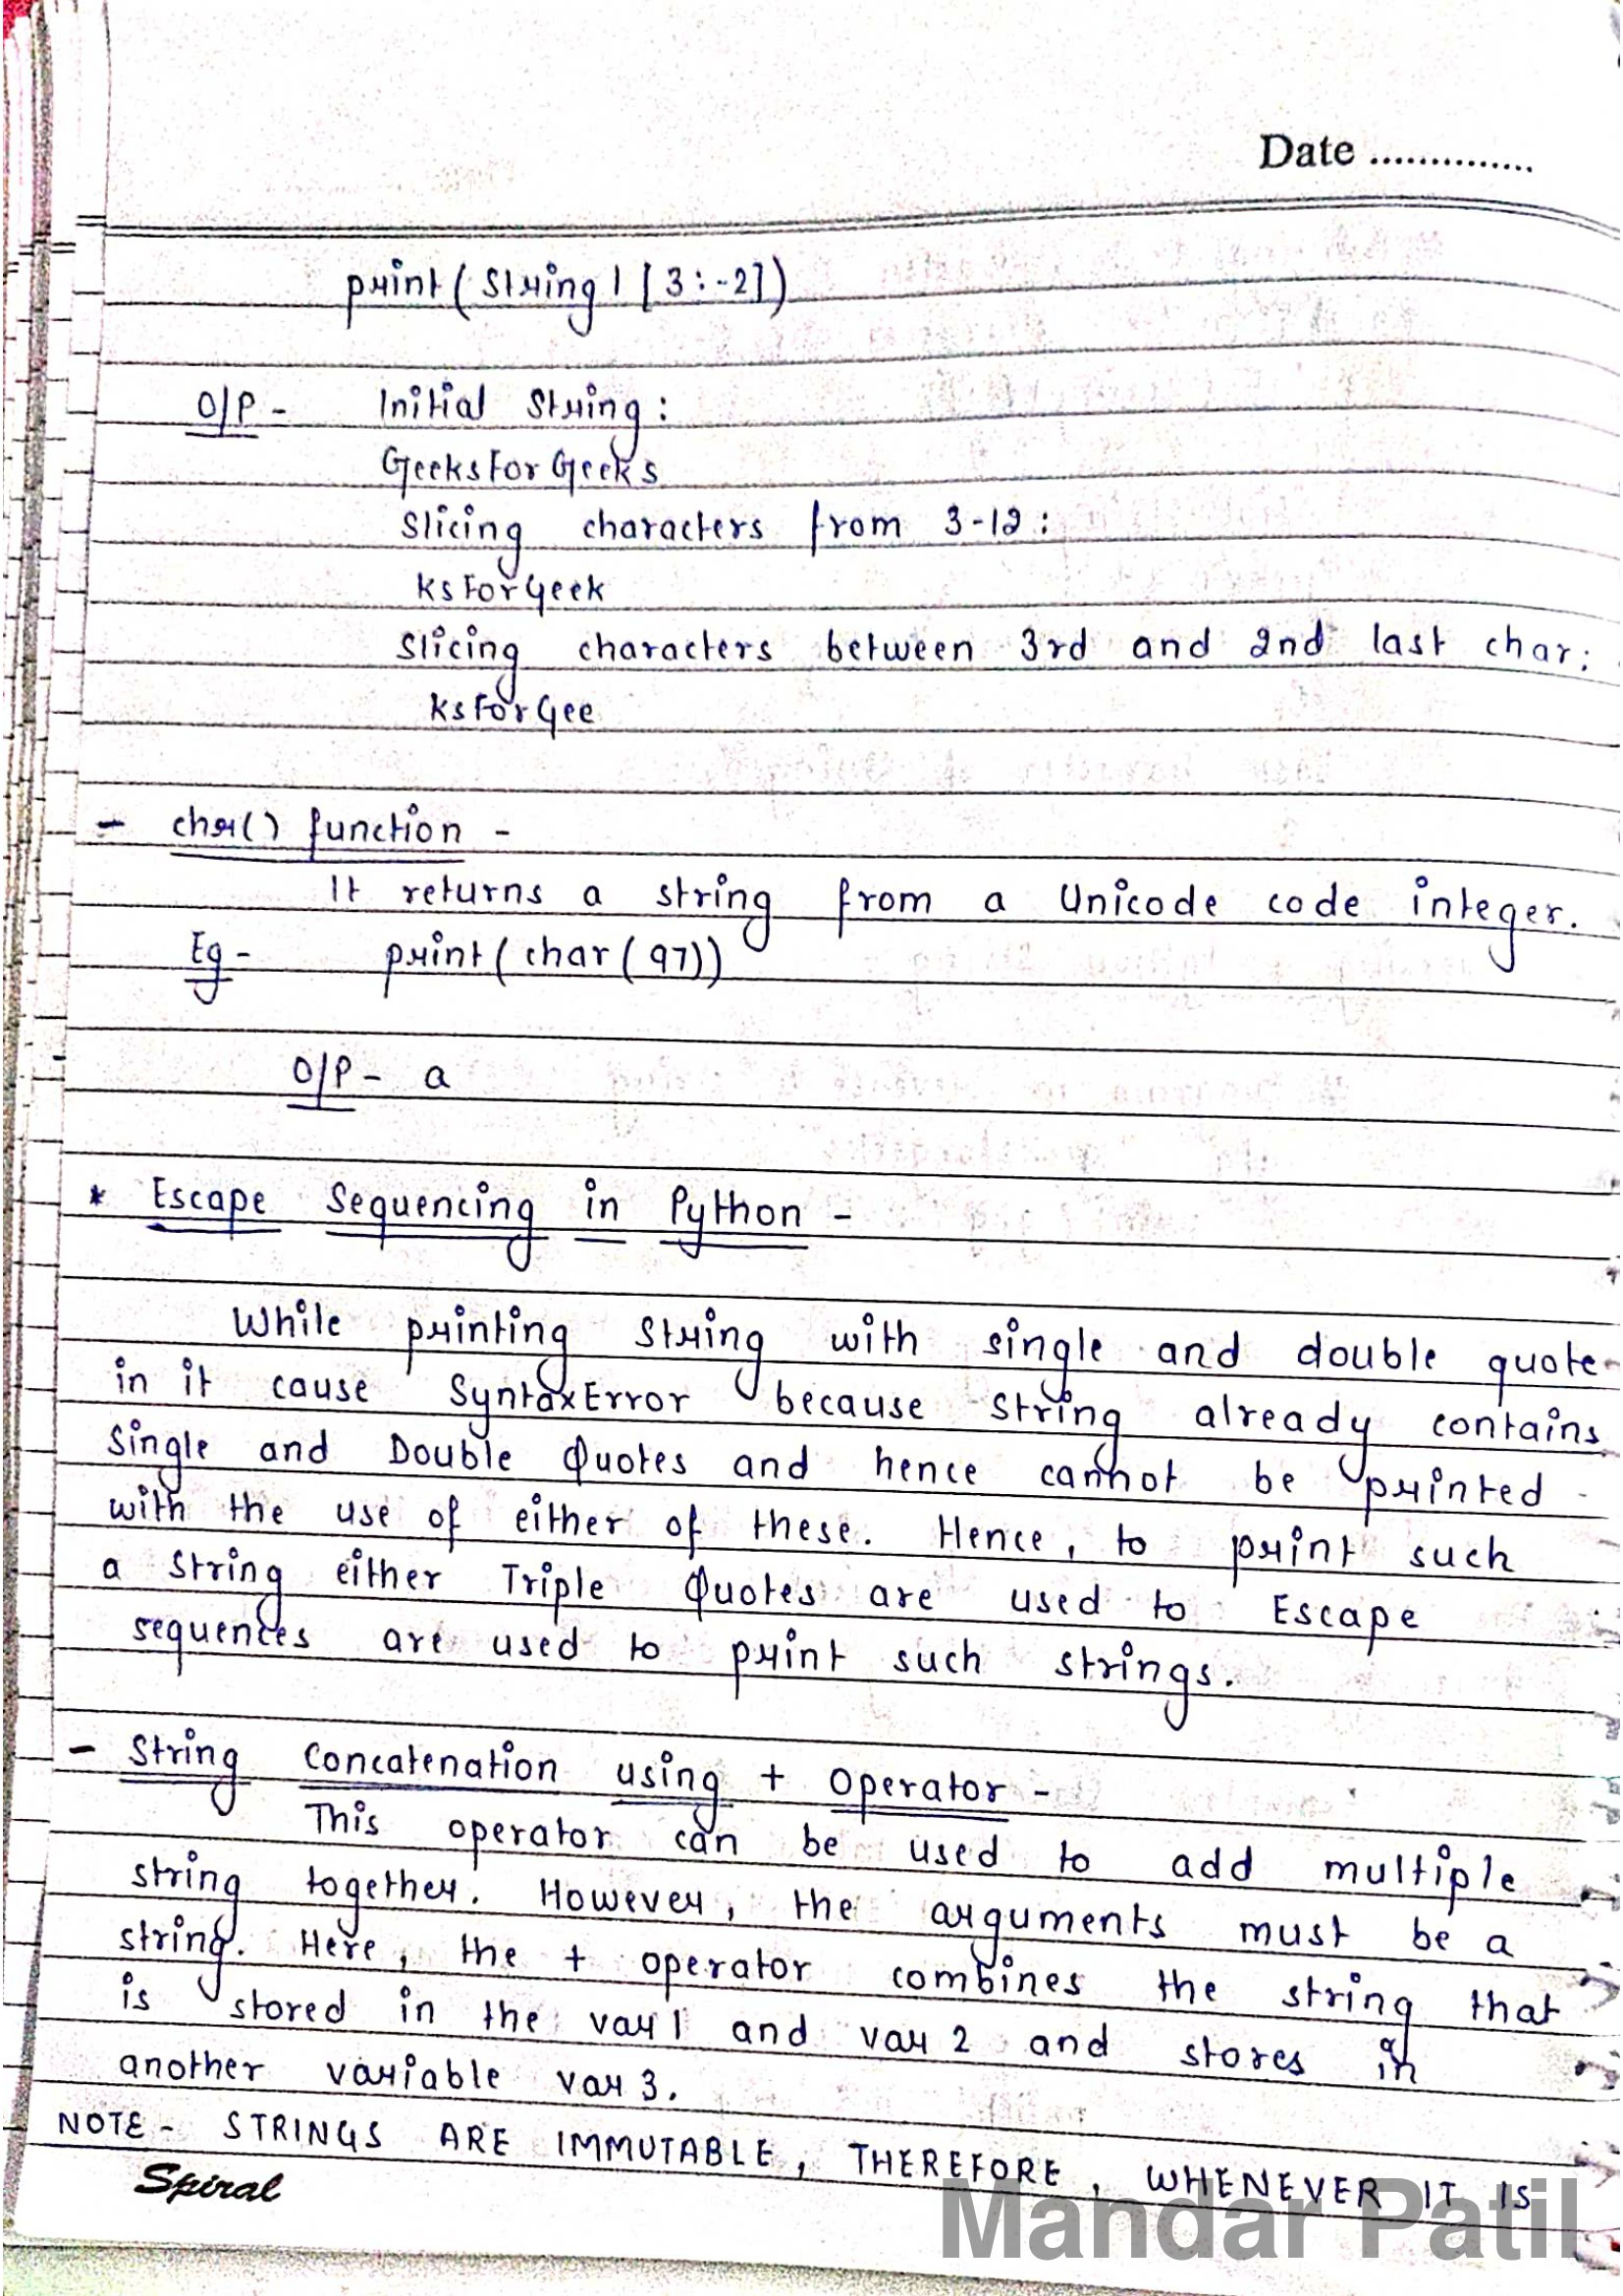 Date ..............
print ( String 1 [ 3 : -2])
O/P - Initial String :
GeeksForGeeks
Slicing characters from 3-12 :
ksForGeek
Slicing characters between 3rd and 2nd last char :
ksForGee
- char() function -
It returns a string from a Unicode code integer.
Eg - print ( char ( 97))
O/P - a
* Escape Sequencing in Python -
While printing String with single and double quote
in it cause SyntaxError because String already contains
Single and Double Quotes and hence cannot be printed
with the use of either of these. Hence, to print such
a String either Triple Quotes are used to Escape
sequences are used to print such strings.
- String Concatenation using + Operator -
This operator can be used to add multiple
string together. However, the arguments must be a
string. Here, the + operator combines the string that
is stored in the var 1 and var 2 and stores in
another variable var 3.
NOTE - STRINGS ARE IMMUTABLE, THEREFORE, WHENEVER IT IS
Spiral
Mandar Patil